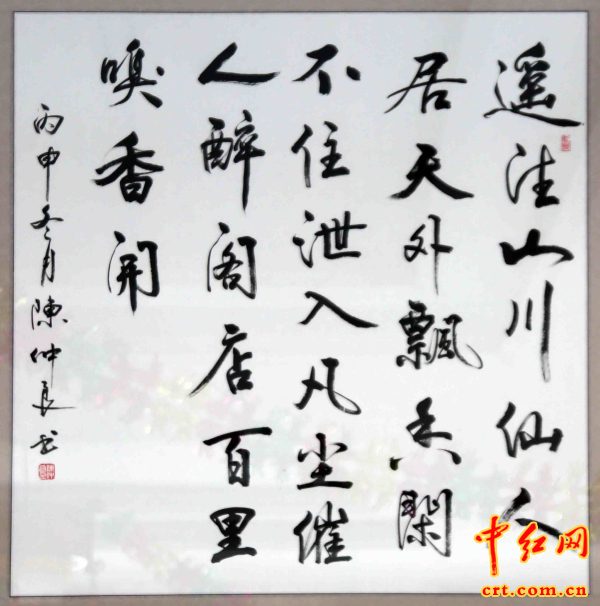 遥山川仙人
居天外飄香関
不住泄入凡尘催
人醉阁店百里
嗅香開
丙申冬月陳仲良书
中红网
crt.com.cn